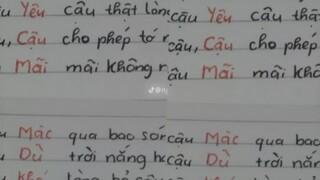 Yêu cầu thật lòn
Yêu cầu thậ
Cậu cho phép tớ
cậu, Cậu cho phép
Mãi mãi không
Mãi mãi khô
Mặc qua bao
cậu Mặc qua bao
Dù trời nắng
cậu Dù trời nắ